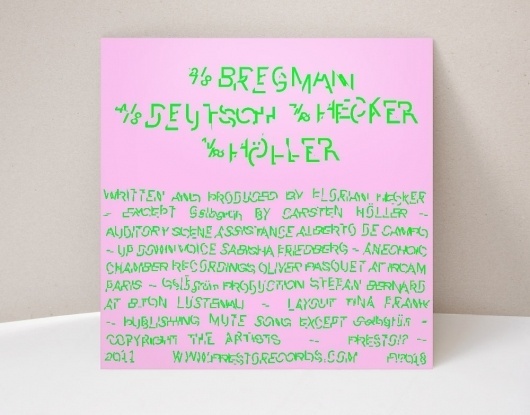 4/8 BREGMAN
4/8 DEUTSCH 7/8 HECKER
1/8 HÖLLER
WRITTEN AND PRODUCED BY FLORIAN HECKER
– EXCEPT BY CARSTEN HÖLLER –
AUDITORY SCENE ASSISTANCE ALBERTO DE CAMPO
– UP DOWN VOICE SABISHA FRIEDBERG – ANECHOIC
CHAMBER RECORDINGS OLIVIER PASQUET AT IRCAM
PARIS – PRODUCTION STEFAN BERNARD
AT B.TON LUSTENAU – LAYOUT TINA FRANK
– PUBLISHING MUTE SONG EXCEPT –
COPYRIGHT THE ARTISTS – PRESTO!?
2011 WWW.PRESTORECORDS.COM P!?018